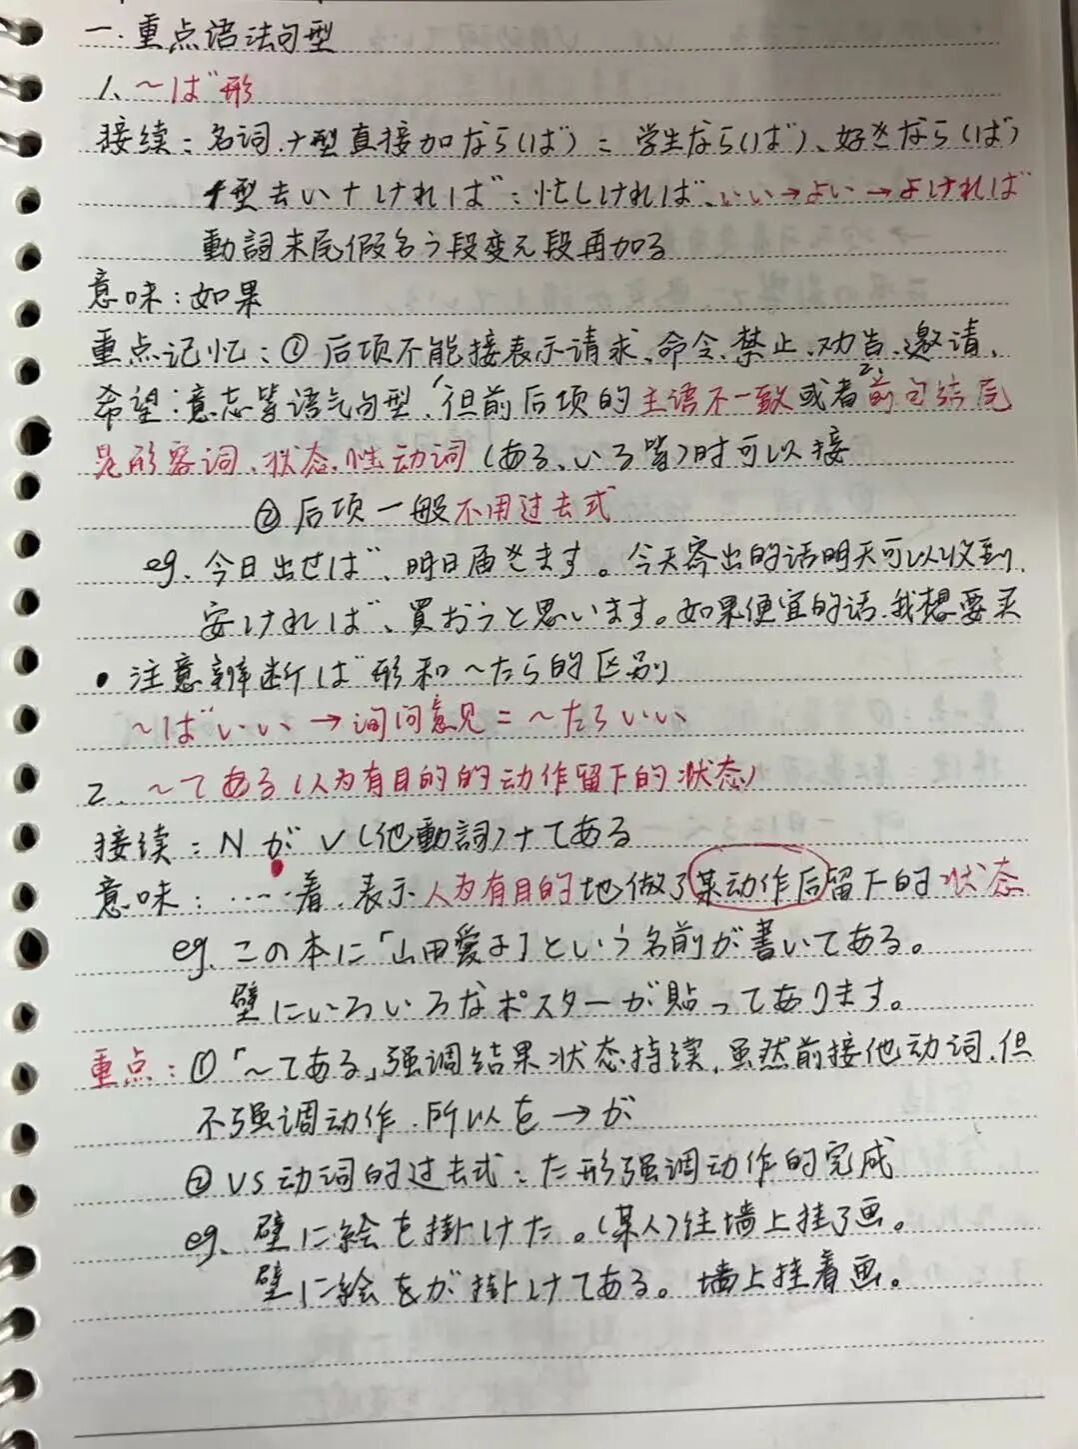 一.重点语法句型
1、～ば形
接续：名词.ナ型直接加なら(ば)：学生なら(ば)、好きなら(ば)
イ型去い+ければ：忙しければ、いい→よい→よければ
動詞末尾假名う段变え段再加る
意味：如果
重点记忆：①后项不能接表示请求、命令、禁止、劝告、邀请、
希望、意志等语气句型，但前后项的主语不一致或者前句结尾
是形容词、状态性动词(ある、いる等)时可以接
②后项一般不用过去式
eg、今日出せば、明日届きます。今天寄出的话明天可以收到
安ければ、買おうと思います。如果便宜的话.我想要买
• 注意辨断ば形和～たら的区别
～ばいい→询问意见=～たらいい
2、～てある(人为有目的的动作留下的状态)
接续：NがV(他動詞)+てある
意味：……着.表示人为有目的地做了某动作后留下的状态
eg、この本に「山田愛子」という名前が書いてある。
壁にいろいろなポスターが貼ってあります。
重点：①「～てある」强调结果状态持续，虽然前接他动词.但
不强调动作.所以を→が
②VS动词的过去式：た形强调动作的完成
eg、壁に絵を掛けた。(某人)往墙上挂了画。
壁に絵をが掛けてある。墙上挂着画。